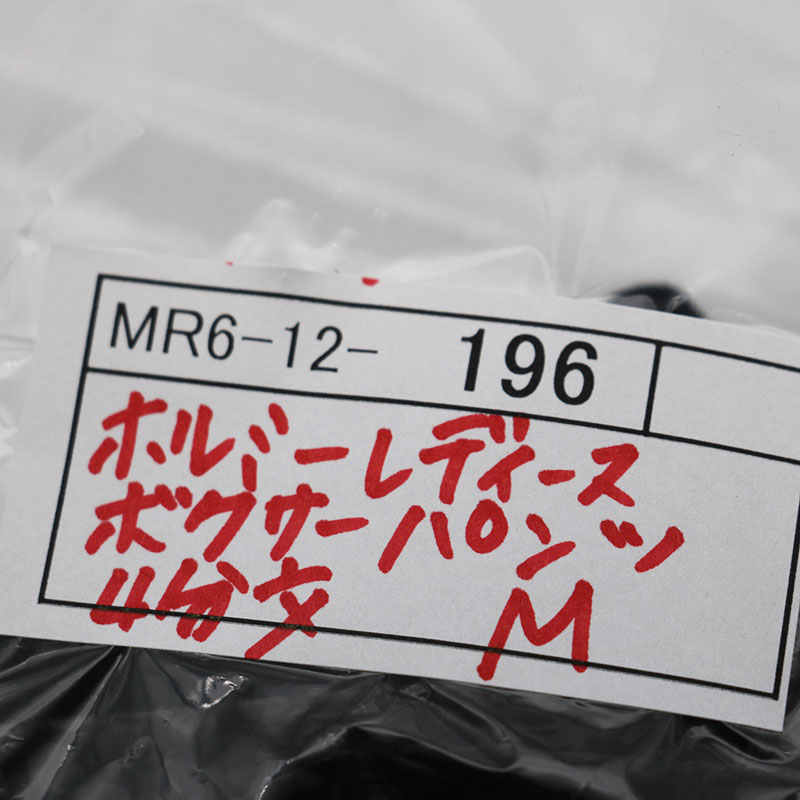 MR6-12- 196
ホルバーレディース
ボクサーパンツ
4分丈 M